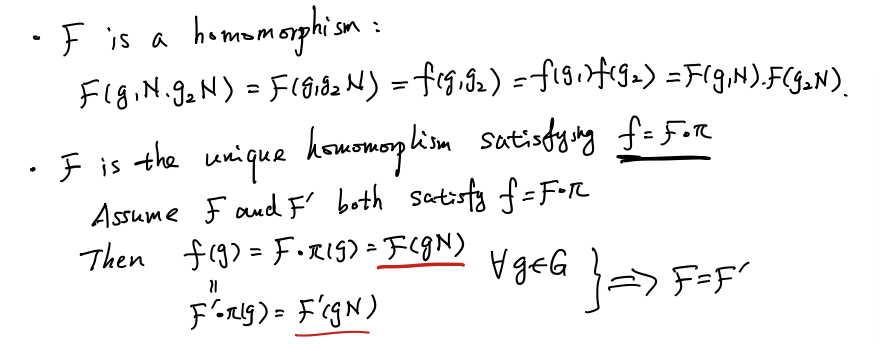 · F is a homomorphism :
F(g₁N.g₂N) = F(g₁g₂N) = f(g₁g₂) = f(g₁)f(g₂) = F(g₁N).F(g₂N).
· F is the unique homomorphism satisfying f = F∘π
Assume F and F' both satisfy f = F∘π
Then f(g) = F∘π(g) = F(gN) ∀g∈G } ⟹ F = F'
=
F'∘π(g) = F'(gN)